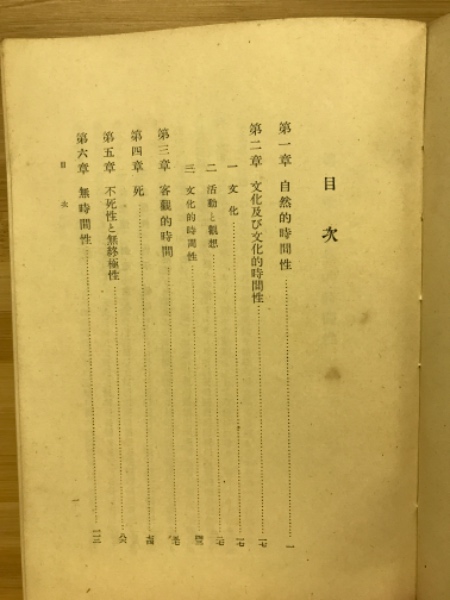 目次
第一章 自然的時間性……一
第二章 文化及び文化的時間性……一七
一 文化……一七
二 活動と觀想
三 文化的時間性
第三章 客觀的時間
第四章 死
第五章 不死性と無終極性
第六章 無時間性
目次
一